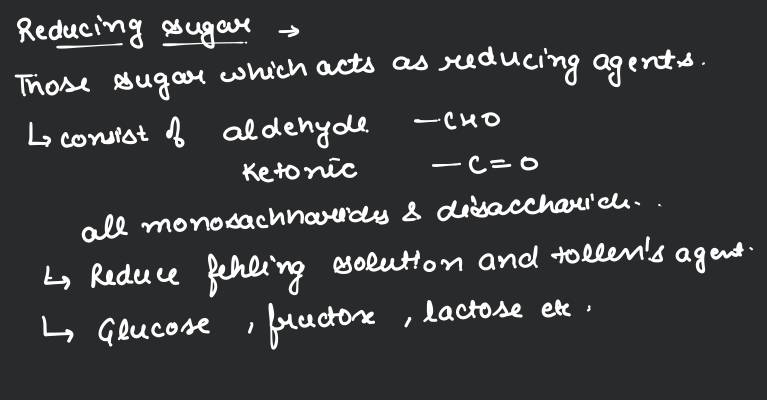 Reducing sugar →
Those sugar which acts as reducing agents.
↳ consist of aldehyde —CHO
Ketonic —C=O
all monosachnarides & disaccharide. .
↳ Reduce fehling solution and tollen's agent.
↳ Glucose , fructose , lactose etc .